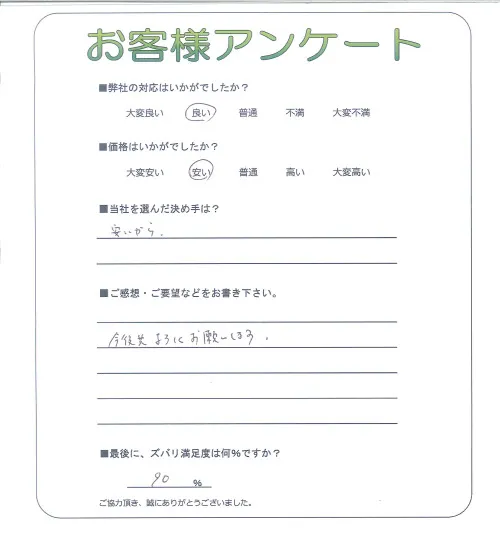 お客様アンケート
■弊社の対応はいかがでしたか？
大変良い 良い 普通 不満 大変不満
■価格はいかがでしたか？
大変安い 安い 普通 高い 大変高い
■当社を選んだ決め手は？
安いから.
■ご感想・ご要望などをお書き下さい。
今後共よろしくお願いします.
■最後に、ズバリ満足度は何%ですか？
90 %
ご協力頂き、誠にありがとうございました。